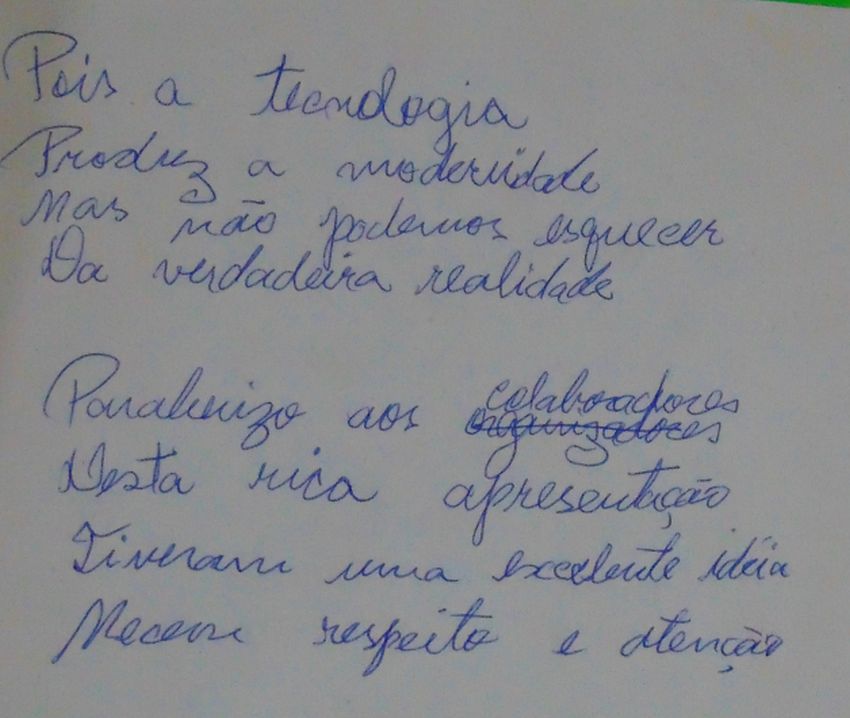 Pois a tecnologia
Produz a modernidade
Mas não podemos esquecer
Da verdadeira realidade
Parabenizo aos colaboradores
organizadores
Desta rica apresentação
Tiveram uma excelente idéia
respeito e atenção